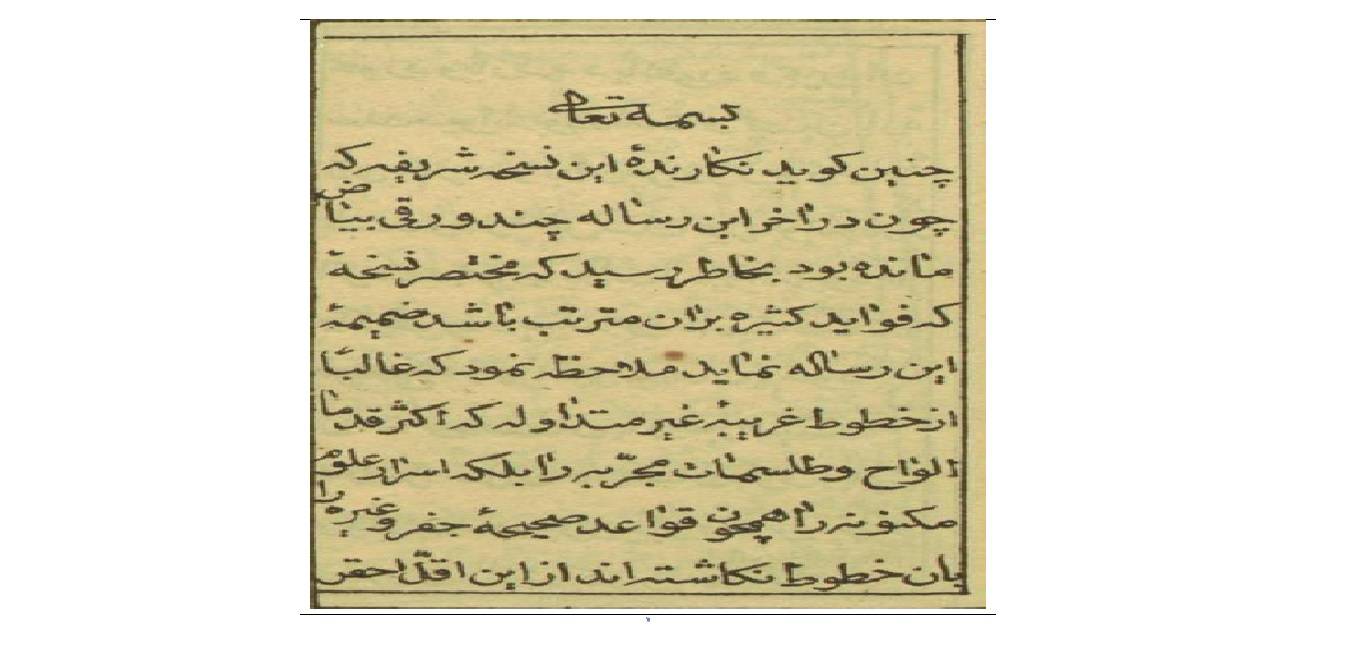 بسمه تعالی
چنین کوید نکارندهٔ این نسخه شریفه که
چون در اخر این رساله چند ورقی بیاض
مانده بود بخاطر رسید که مختصر نسخهٔ
که فواید کثیره بران مترتب باشد ضمیمهٔ
این رساله نماید ملاحظه نمود که غالبًا
از خطوط غریبهٔ غیر متداوله که اکثر قدما
الواح وطلسمات مجرّبه را بلکه اسرار علوم
مکنونه را همچون قواعد صحیحهٔ جفر وغیره را
بان خطوط نکاشته اند از این اقلّ احقر
۷